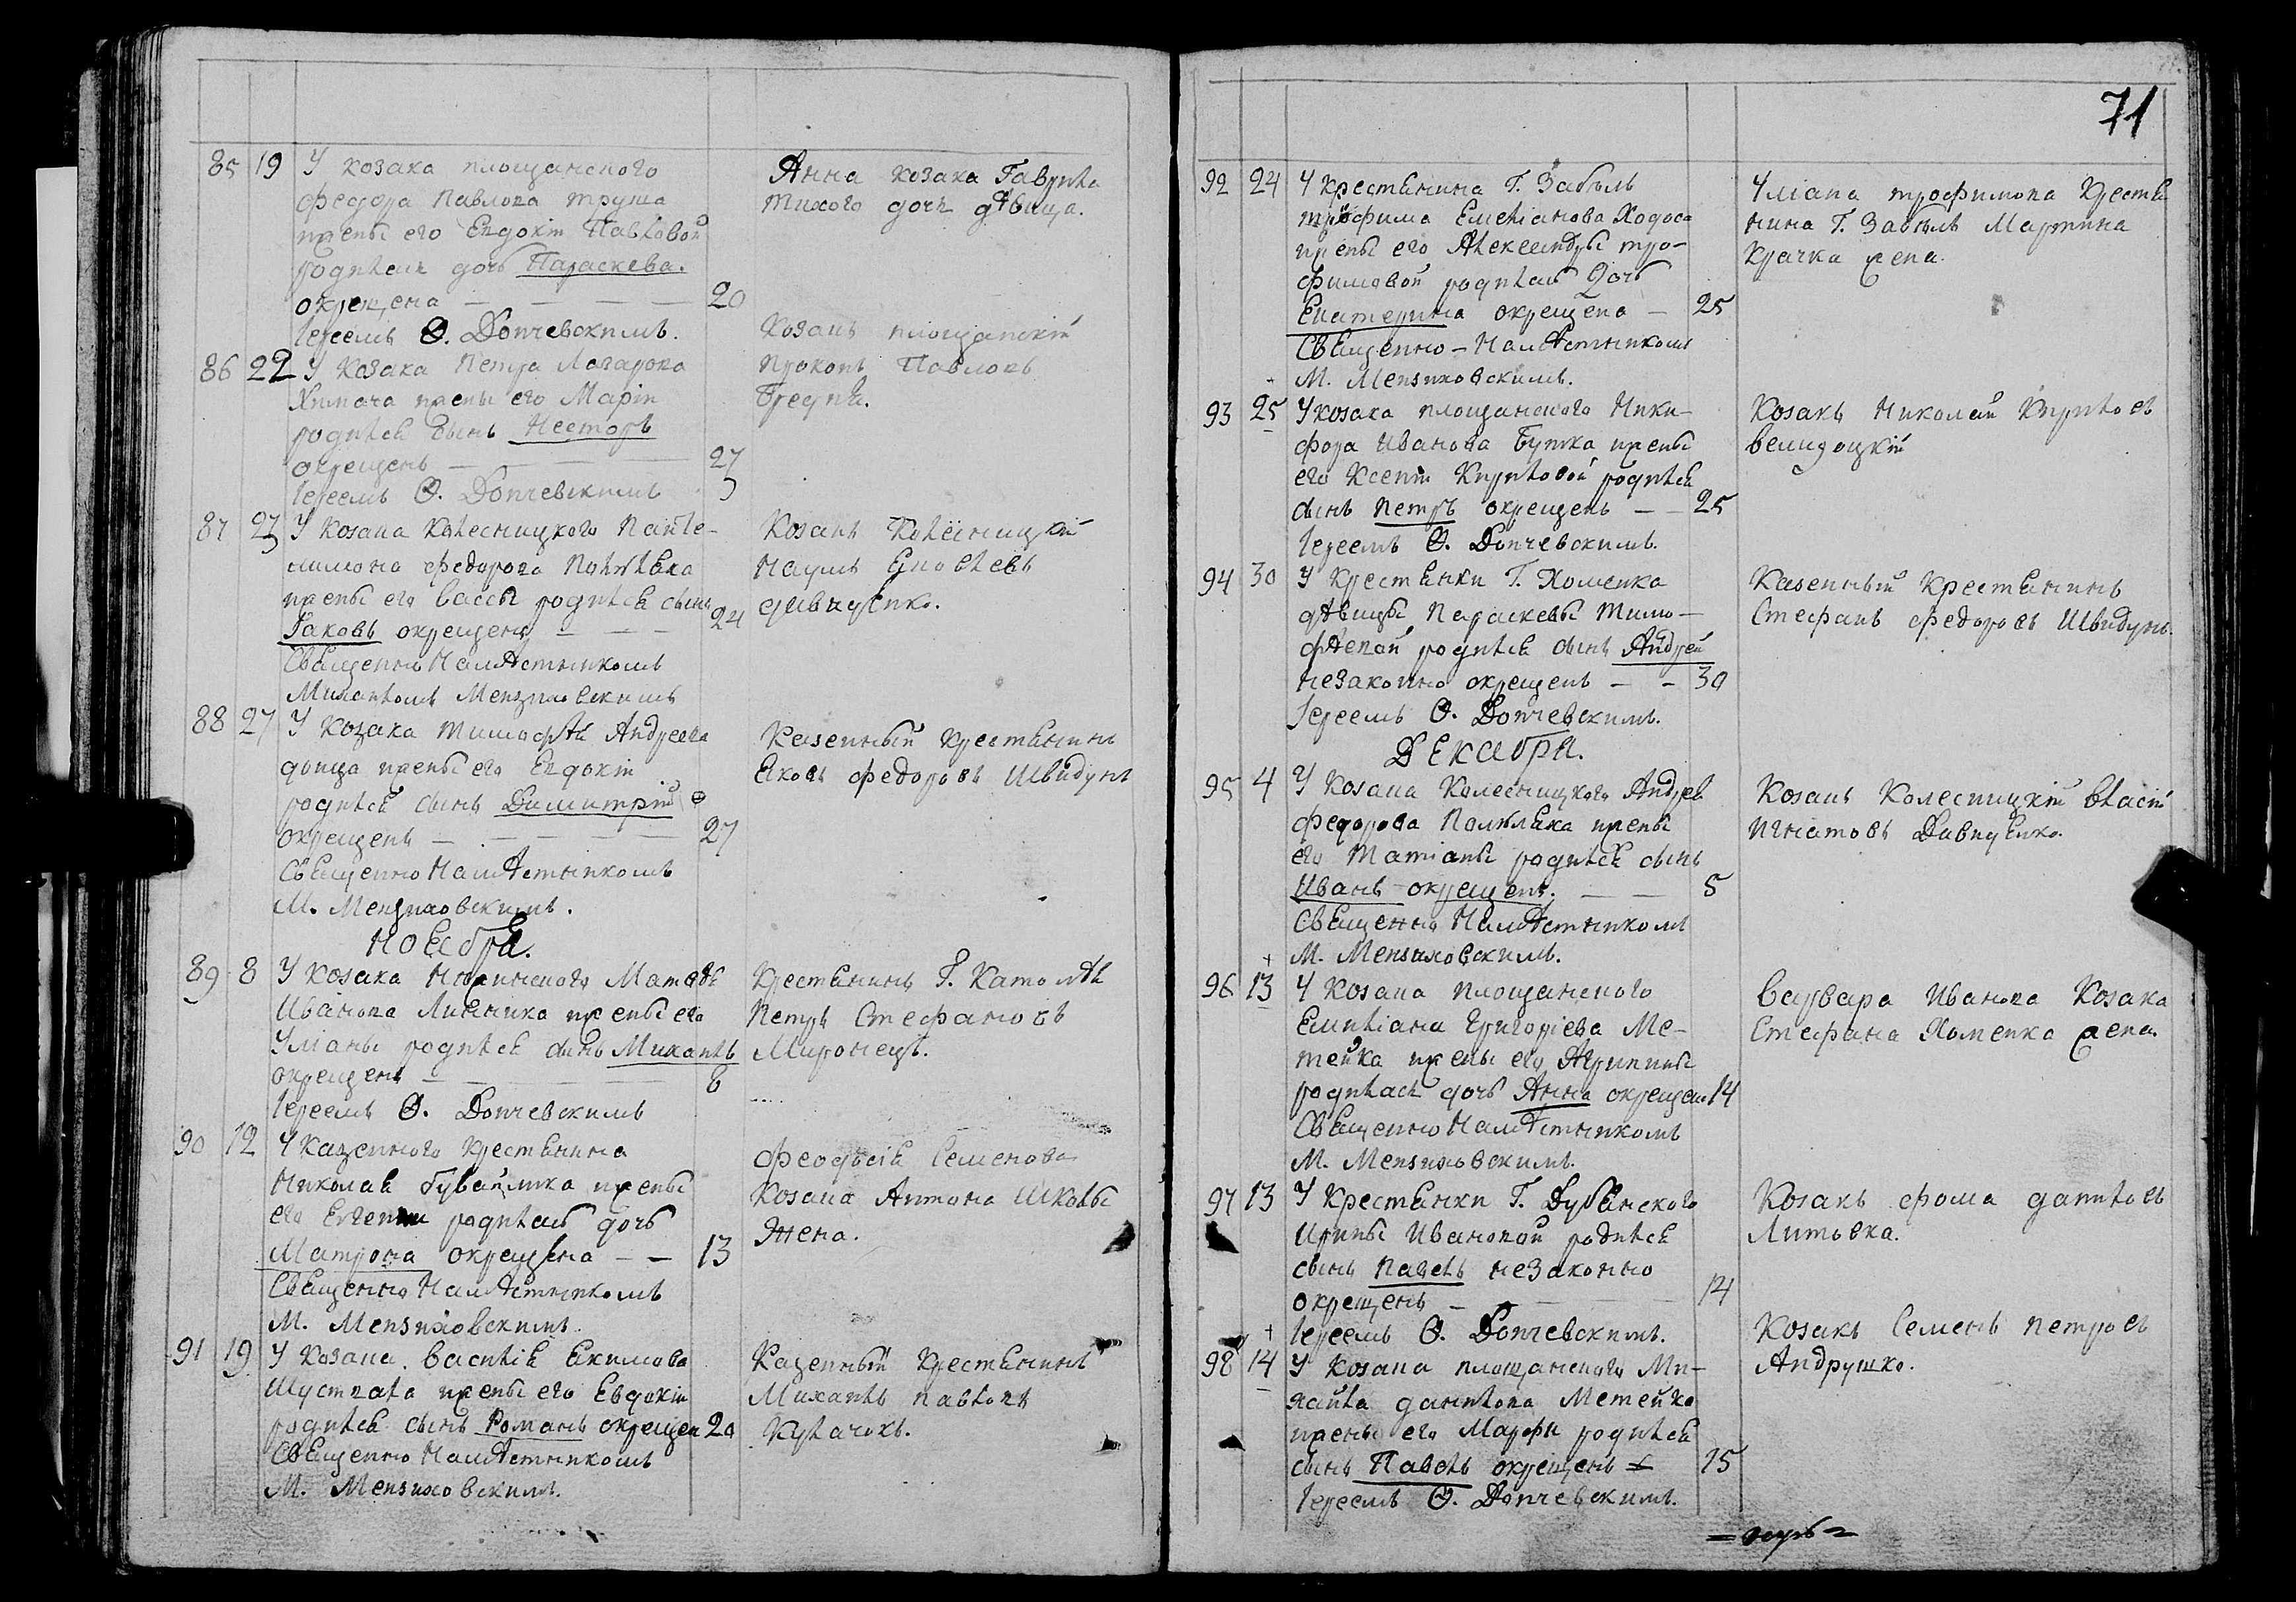 85 19 У козака площанского
Феодора Павлова Труша
жены его Евдокіи Павловой
родилась дочь Параскева.
окрещена — — — — 20
Іереемъ Ѳ. Допчевскимъ.
Анна козака Гаврила
Тихого дочь дѣвица.
86 22 У козака Петра Лазарова
жены его Маріи
родился сынъ Несторъ
окрещенъ — — — 27
Іереемъ Ѳ. Допчевскимъ
Козакъ площанскій
Прокопъ Павловъ
87 23 У козака Колесницкого Панте-
лимона Федорова Полуляка
жены его Вассы родился сынъ
Іаковъ окрещенъ — — — 24
Священно Намѣстникомъ
Михаиломъ Мензиховскимъ
Козакъ Колесницкій
Наумъ
88 27 У козака Тимофѣя Андреева
донца жены его Евдокіи
родился сынъ Димитрій
окрещенъ — — — — 27
Священно Намѣстникомъ
М. Мензиховскимъ.
Казенный крестянинъ
Яковъ Федоровъ Швидунъ
Ноября.
89 8 У козака Матвѣя
Иванова Линника жены его
Уліаны родился сынъ Михаилъ
окрещенъ — — — 8
Іереемъ Ѳ. Допчевскимъ
Крестянинъ Г.
Петръ Стефановъ
Миронецъ.
90 12 У казенного крестянина
Николая жены
его Евгеніи родилась дочь
Матрона окрещена — — 13
Священно Намѣстникомъ
М. Мензиховскимъ.
Феодосія Семенова
Козака Антона Шковы
жена.
91 19 У козака Василія Екимова
Шустваля жены его Евдокіи
родился сынъ Романъ окрещен 20
Священно Намѣстникомъ
М. Мензиховскимъ.
Казенный крестянинъ
Михаилъ Павловъ
Кулачокъ.
71
92 24 У крестянина Г. Забѣлы
Трофима Емеліанова Ходоса
жены его Александры Тро-
фимовой родилась дочь
Екатерина окрещена — 25
Священно - Намѣстникомъ
М. Мензиховскимъ.
Уліана Трофимова крестя
нина Г. Забѣлы Мартина
Крачка жена.
93 25 У козака площанского Ники-
фора Иванова Бутка жены
его Ксеніи Кириловой родился
сынъ Петръ окрещенъ — — 25
Іереемъ Ѳ. Допчевскимъ.
Козакъ Николай Кириловъ
94 30 У крестянки Г. Хоменка
дѣвицы Параскевы Тимо-
фѣевой родился сынъ Андрей
незаконно окрещенъ — — 30
Іереемъ Ѳ. Допчевскимъ.
Казенный крестянинъ
Стефанъ Федоровъ Швидунъ.
Декабря.
95 4 У козака Колесницкого Андрея
Федорова Полуляка жены
его Татіаны родился сынъ
Иванъ окрещенъ. — — 5
Священно Намѣстникомъ
+ М. Мензиховскимъ.
Козакъ Колесницкій Власій
Игнатовъ Давидѣнко.
96 13 У козака площанского
Емиліана Григоріева Ме-
тейка жены его Агрипины
родилась дочь Анна окрещена 14
Священно Намѣстникомъ
М. Мензиховскимъ.
Варвара Иванова Козака
Стефана Хоменка жена.
97 13 У крестянки Г. Дубянского
Ирины Ивановой родился
сынъ Павелъ незаконно
окрещенъ — — — 14
+ Іереемъ Ѳ. Допчевскимъ.
Козакъ Фома Даниловъ
98 14 У козака площанского Ми-
хайла Данилова Метейка
жены его Марфы родился
сынъ Павелъ окрещенъ — 15
Іереемъ Ѳ. Допчевскимъ.
Козакъ Семенъ Петровъ
Андрушко.